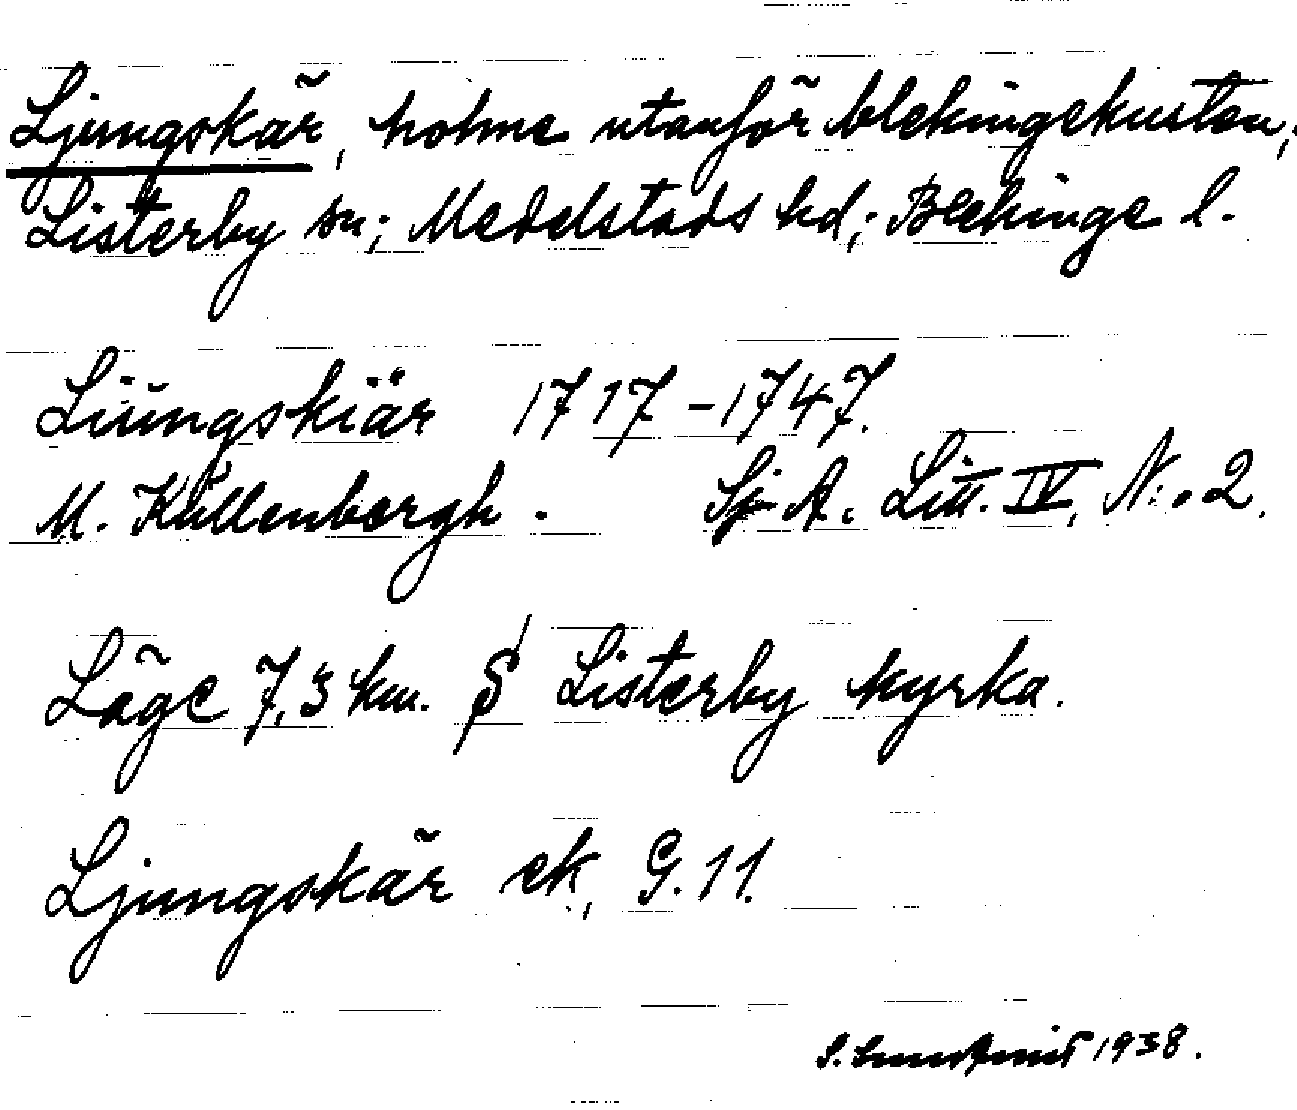 Ljungskär, holme utanför blekingekusten,
Listerby sn; Medelstads hd; Blekinge l.
Liüngskiär 1717-1747.
M. Küllenbergh. Sj A. Litt. IV, N:o 2.
Läge 7,3 km. S Listerby kyrka.
Ljungskär ek, G. 11.
1938.